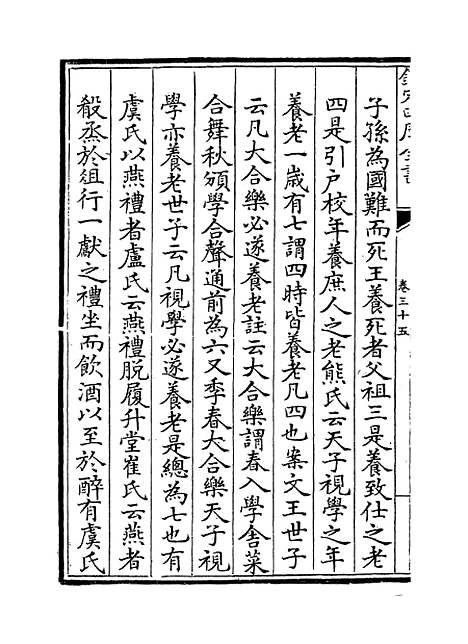 欽定四庫全書
卷三十五
子孫為國難而死王養死者父祖三是養致仕之老
四是引户校年養庶人之老熊氏云天子視學之年
養老一歲有七謂四時皆養老凡四也案文王世子
云凡大合樂必遂養老註云大合樂謂春入學舍菜
合舞秋頒學合聲通前為六又季春大合樂天子視
學亦養老世子云凡視學必遂養老是總為七也有
虞氏以燕禮者盧氏云燕禮脱屨升堂崔氏云燕者
殽烝於俎行一獻之禮坐而飲酒以至於醉有虞氏